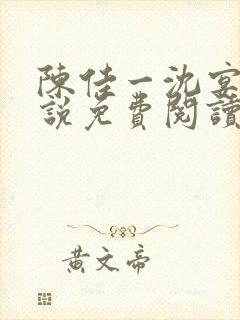 陳佳一沈宴
說免費閱讀
黃文帝